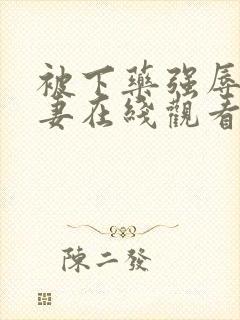 被下藥强辱
妻在綫觀看
陳二發